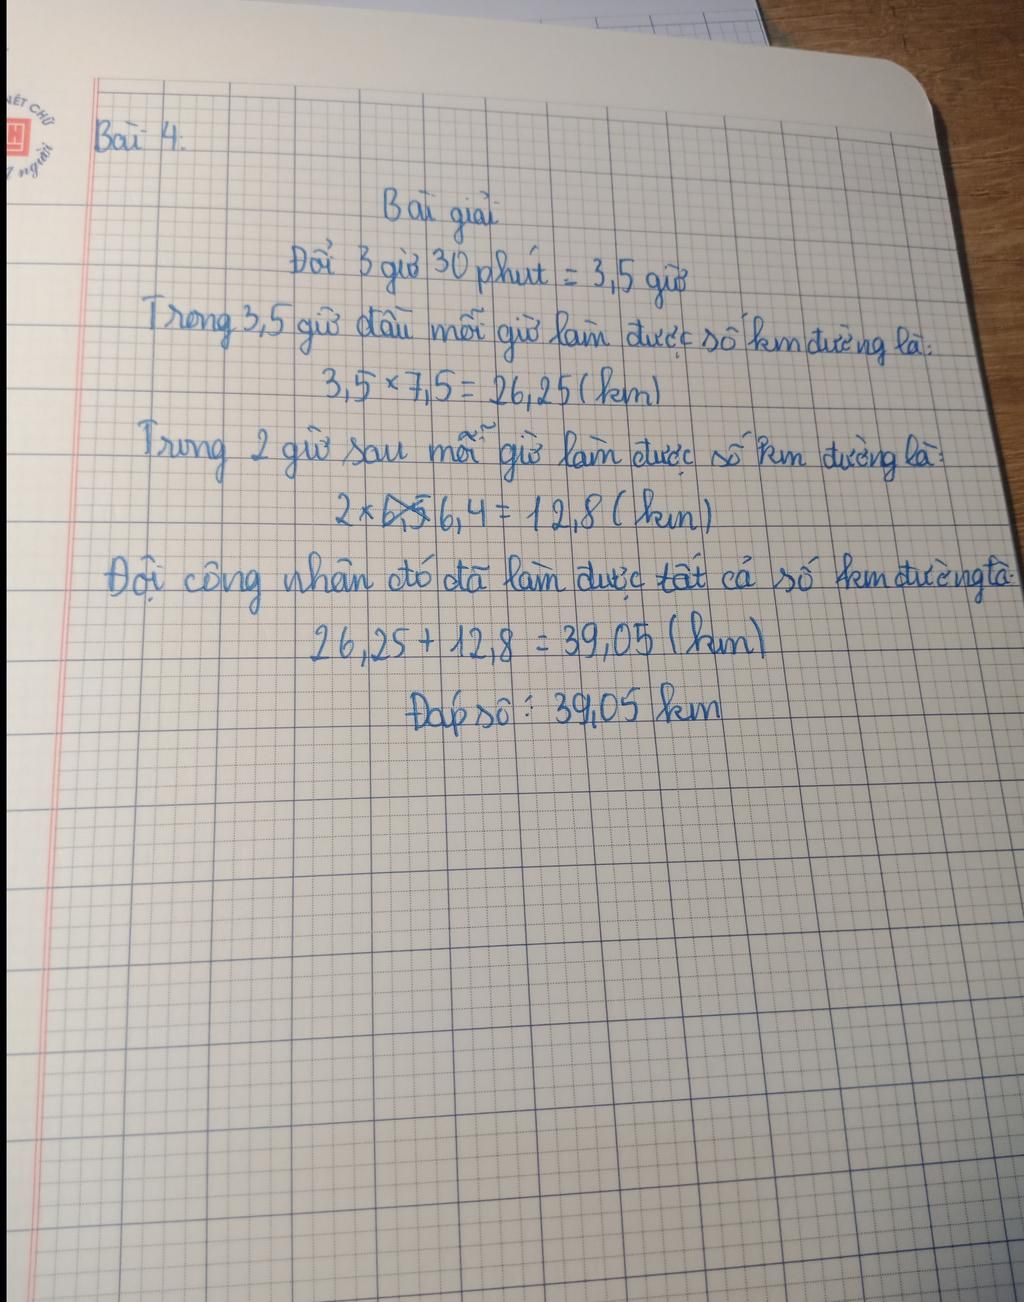 NÉT CHỮ
N
người
Bài 4:
Bài giải
Đổi 3 giờ 30 phút = 3,5 giờ
Trong 3,5 giờ đầu mỗi giờ làm được số km đường là:
3,5 × 7,5 = 26,25 (km)
Trong 2 giờ sau mỗi giờ làm được số km đường là:
2 × 6,4 = 12,8 (km)
Đội công nhân đó đã làm được tất cả số km đường là:
26,25 + 12,8 = 39,05 (km)
Đáp số : 39,05 km